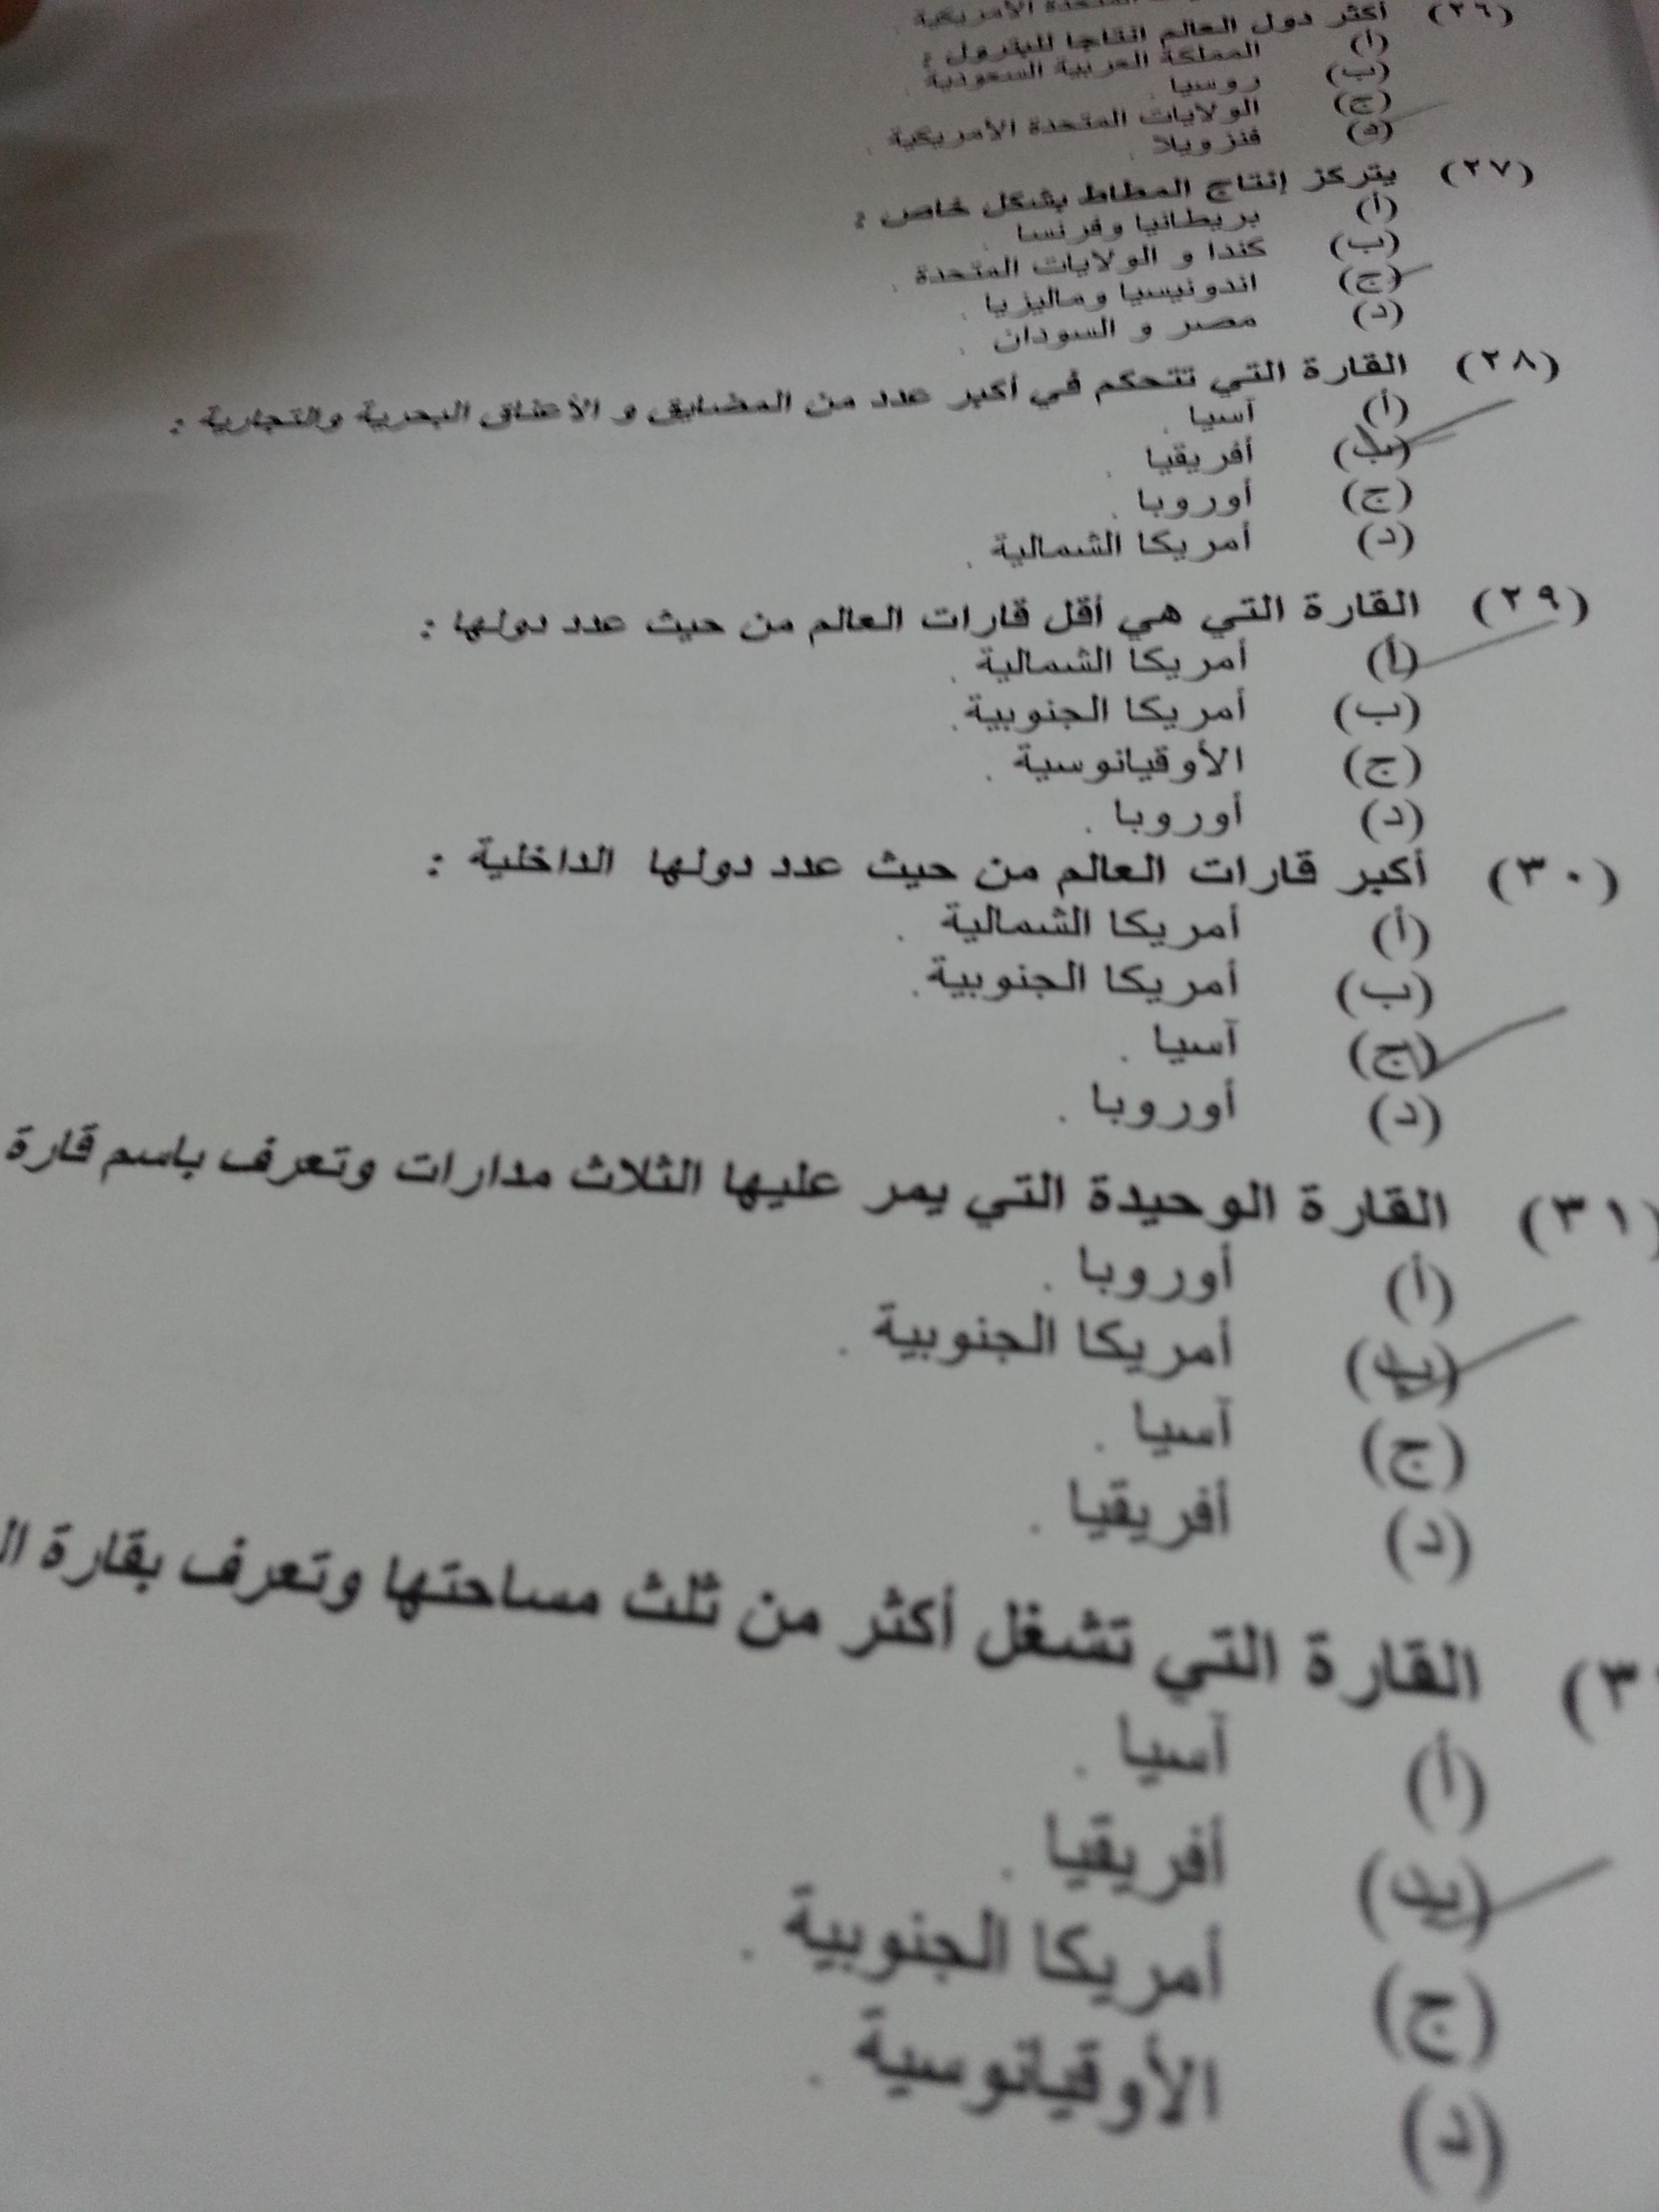 المتحدة الأمريكية .
(٢٦) أكثر دول العالم انتاجا للبترول :
(أ) المملكة العربية السعودية .
(ب) روسيا .
(ج) الولايات المتحدة الأمريكية .
(د) فنزويلا .
(٢٧) يتركز إنتاج المطاط بشكل خاص :
(أ) بريطانيا وفرنسا .
(ب) كندا و الولايات المتحدة .
(ج) اندونيسيا وماليزيا .
(د) مصر و السودان .
(٢٨) القارة التي تتحكم في أكبر عدد من المضايق و الأعناق البحرية والتجارية :
(أ) آسيا .
(ب) أفريقيا .
(ج) أوروبا .
(د) أمريكا الشمالية .
(٢٩) القارة التي هي أقل قارات العالم من حيث عدد دولها :
(أ) أمريكا الشمالية .
(ب) أمريكا الجنوبية .
(ج) الأوقيانوسية .
(د) أوروبا .
(٣٠) أكبر قارات العالم من حيث عدد دولها الداخلية :
(أ) أمريكا الشمالية .
(ب) أمريكا الجنوبية .
(ج) آسيا .
(د) أوروبا .
(٣١) القارة الوحيدة التي يمر عليها الثلاث مدارات وتعرف باسم قارة
(أ) أوروبا .
(ب) أمريكا الجنوبية .
(ج) آسيا .
(د) أفريقيا .
القارة التي تشغل أكثر من ثلث مساحتها وتعرف بقارة
(أ) آسيا .
(ب) أفريقيا .
(ج) أمريكا الجنوبية .
(د) الأوقيانوسية .